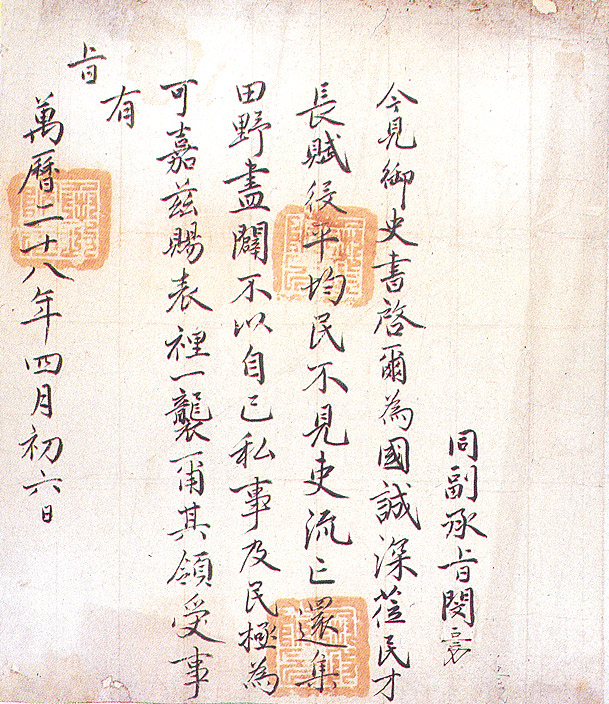 同副承旨閔
今見御史書啓爾為國誠深莅民才
長賦役平均民不見吏流亡還集
田野盡闢不以自己私事及民極為
可嘉茲賜表裡一襲爾其領受事
有
旨
萬曆二十八年四月初六日